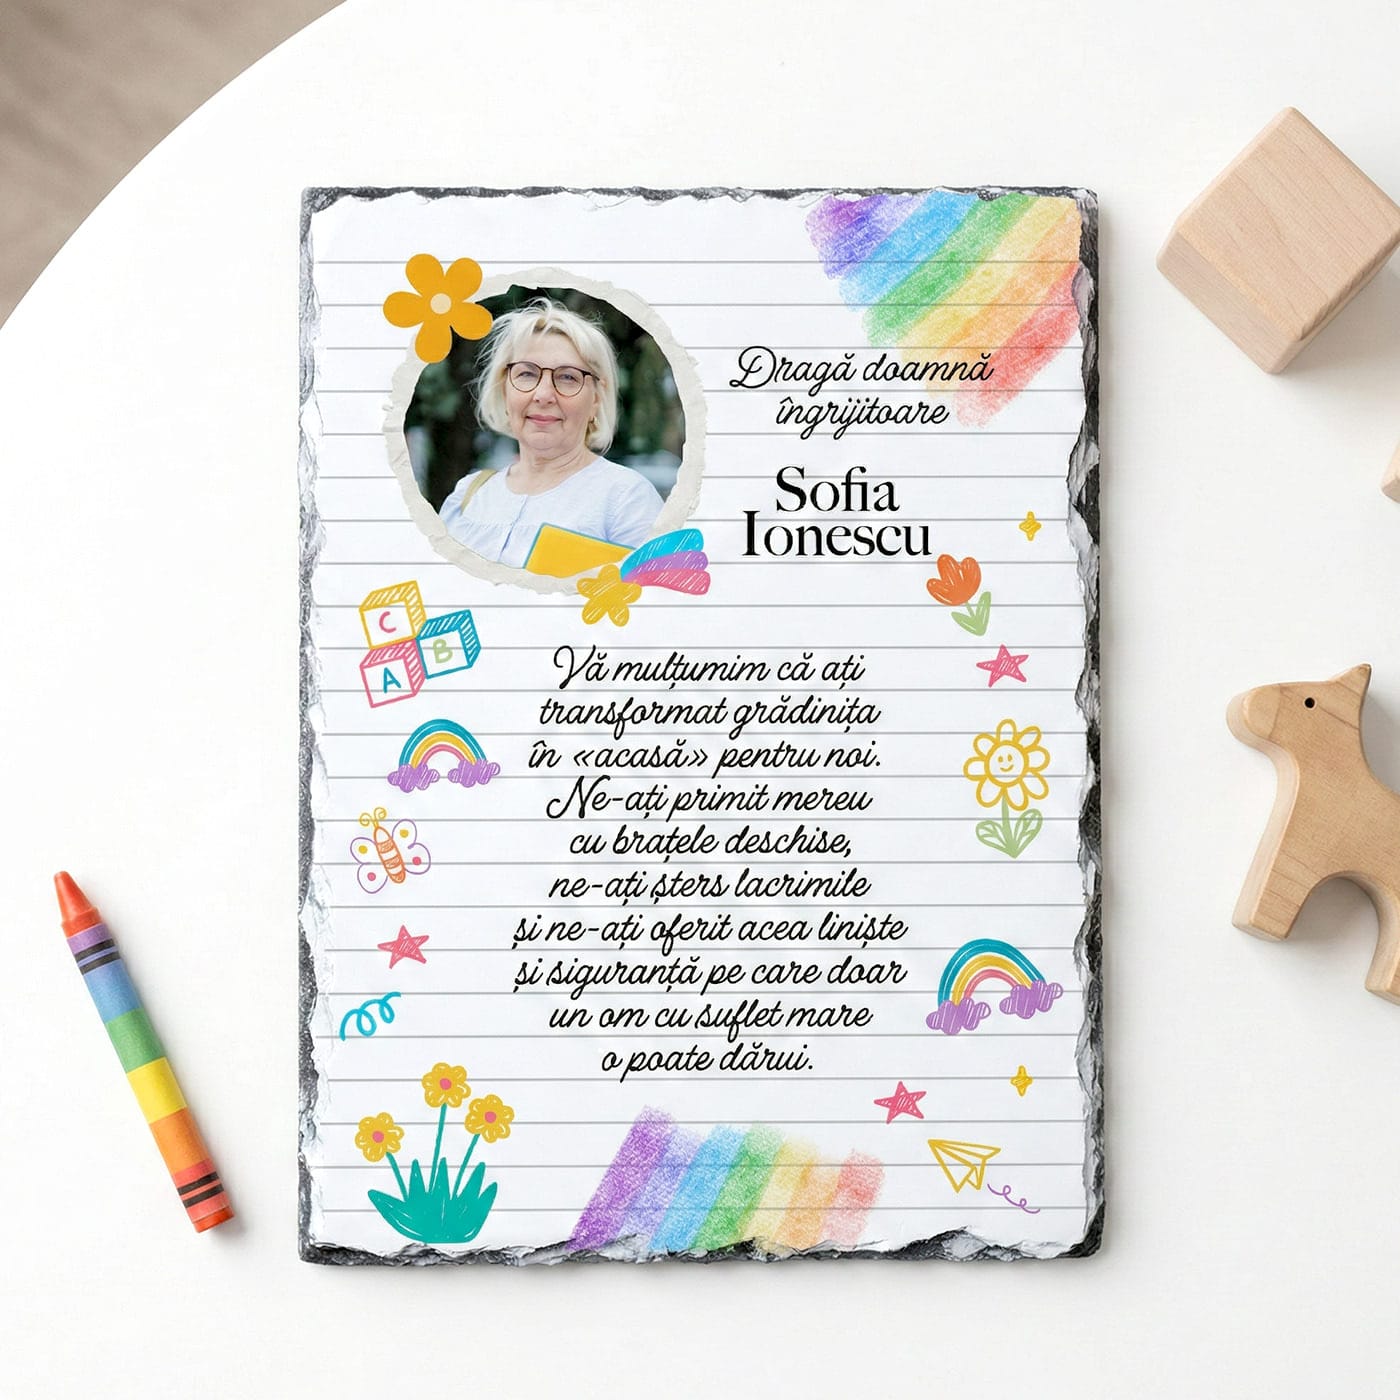 Dragă doamnă
îngrijitoare
Sofia
Ionescu
C
B
A
Vă mulțumim că ați
transformat grădinița
în «acasă» pentru noi.
Ne-ați primit mereu
cu brațele deschise,
ne-ați șters lacrimile
și ne-ați oferit acea liniște
și siguranță pe care doar
un om cu suflet mare
o poate dărui.